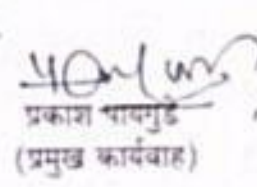 प्रकाश पायगुडे
(प्रमुख कार्यवाह)